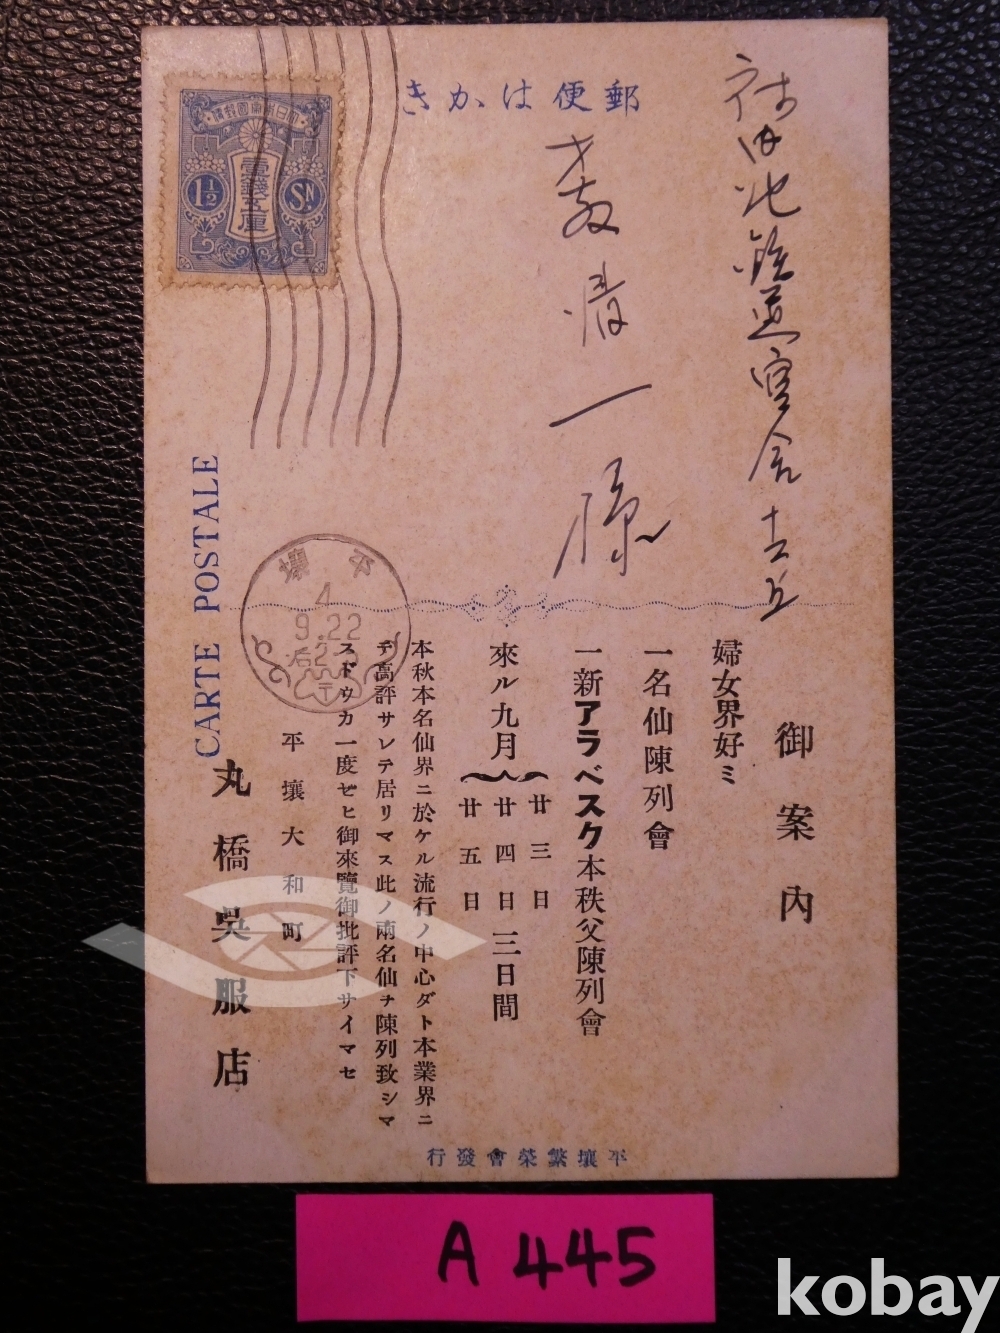 郵便はかき
大日本帝國郵便
壹錢五厘
1½ SN
鐵道官舍
清一様
CARTE POSTALE
平壤
4
9.22
御案內
婦女界好ミ
一名仙陳列會
一新アラベスク本秩父陳列會
來ル九月
廿三日
廿四日
廿五日
三日間
本秋本名仙界ニ於ケル流行ノ中心ダト本業界ニ
テ高評サレテ居リマス此ノ兩名仙ヲ陳列致シマ
スドウカ一度ゼヒ御來覽御批評下サイマセ
平壤大和町
丸橋吳服店
平壤繁榮會發行
A 445
kobay